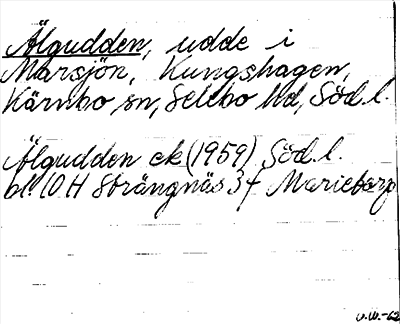 Älgudden, udde i
Marsjön, Kungshagen,
Kärnbo sn, Selebo hd, Söd.l.
Älgudden ek (1959) Söd.l.
bl. 10H Strängnäs 3f Marieberg
U.W.-62